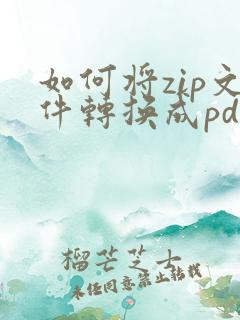 如何将zip文
件轉換成pd
榴芒芝士
未经同意禁止转载